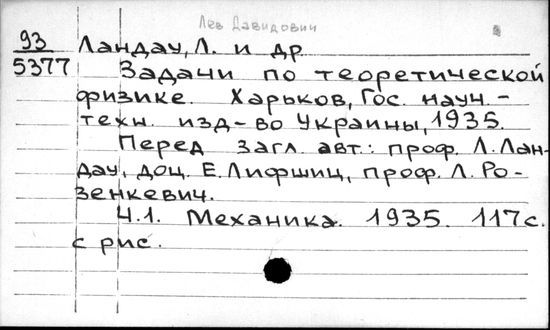 Лев Давидович
93 Ландау, Л. и др
5377 Задачи по теоретической
физике. Харьков, Гос. науч.-
техн. изд-во Украины, 1935.
Перед загл. авт.: проф. Л. Лан-
дау, доц. Е. Лифшиц, проф. Л. Ро-
зенкевич.
Ч.1. Механика. 1935. 117с.
с рис.